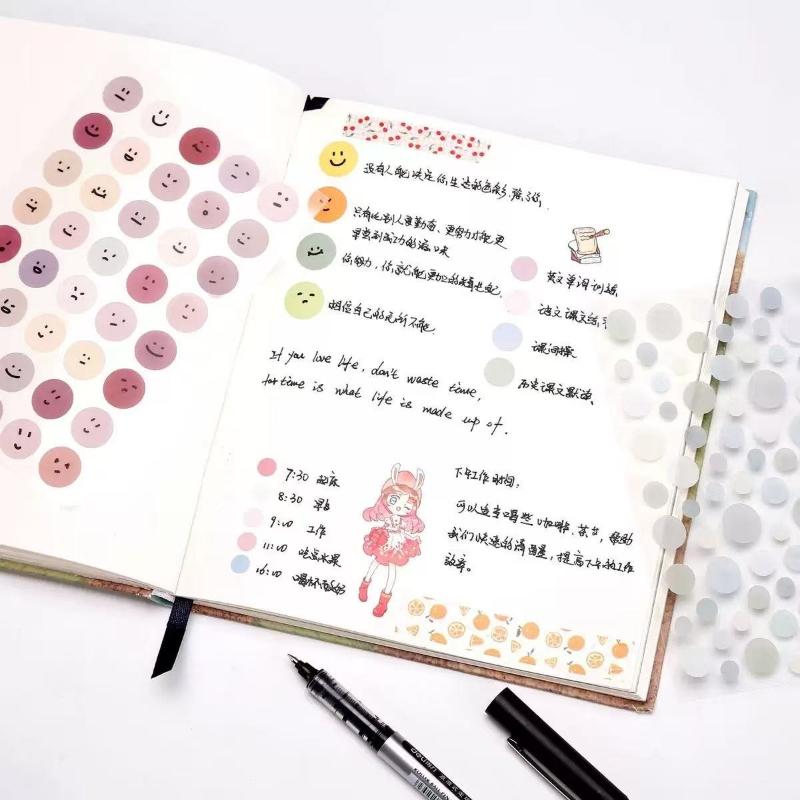 没有人能决定你生活的色彩，除了你.
只有比别人更勤奋、更努力才能更
早尝到成功的滋味
你努力，你就能更
相信自己的无所不能.
If you love life, don't waste time,
for time is what life is made up of.
英文单词训练
语文课文练习
课间操
历史课文默读
7:30 起床
8:30 早餐
9:00 工作
11:00 吃点水果
16:00 喝杯酸奶
下午工作时间，
可以选择喝些咖啡、茶节，帮助
我们快速的清醒，提高下午的工作
效率。
deli